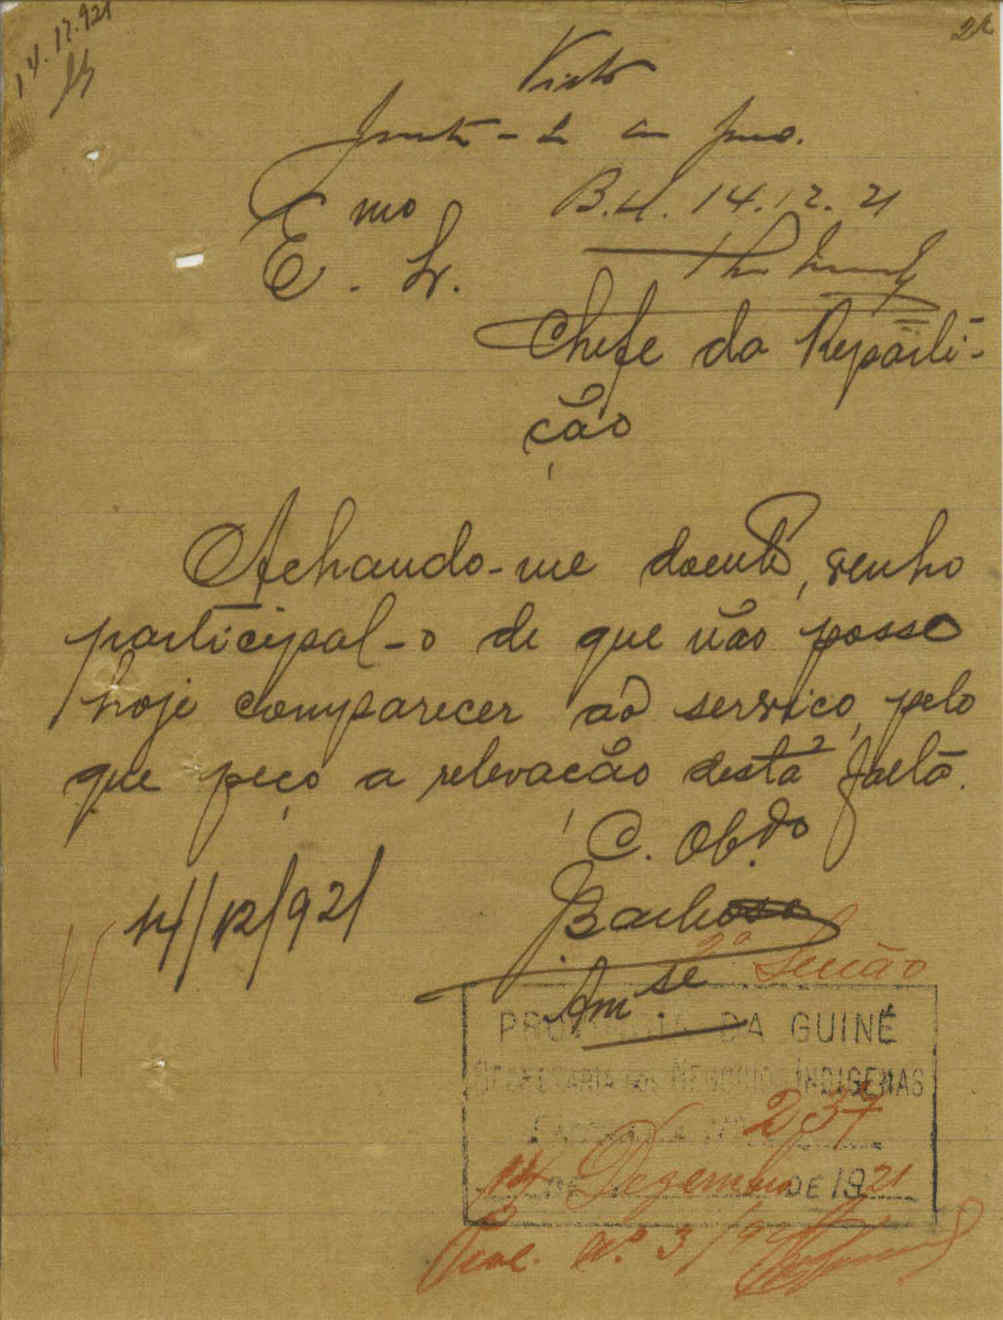 14.12.921
Visto
Junte-se ao proc.
B. 14.12.21
Exmo
E. Sr.
Chefe da Reparti-
ção
Achando-me doente, venho
participal-o de que não posso
hoje comparecer ao serviço, pelo
que peço a relevação desta falta.
C. Obgdo
Barbosa
Amse
14/12/921
2ª Secção
PROVINCIA DA GUINÉ
SECRETARIA DOS NEGOCIOS INDIGENAS
ENTRADA Nº 237
14 DE Dezembro DE 1921
Proc. Nº 3